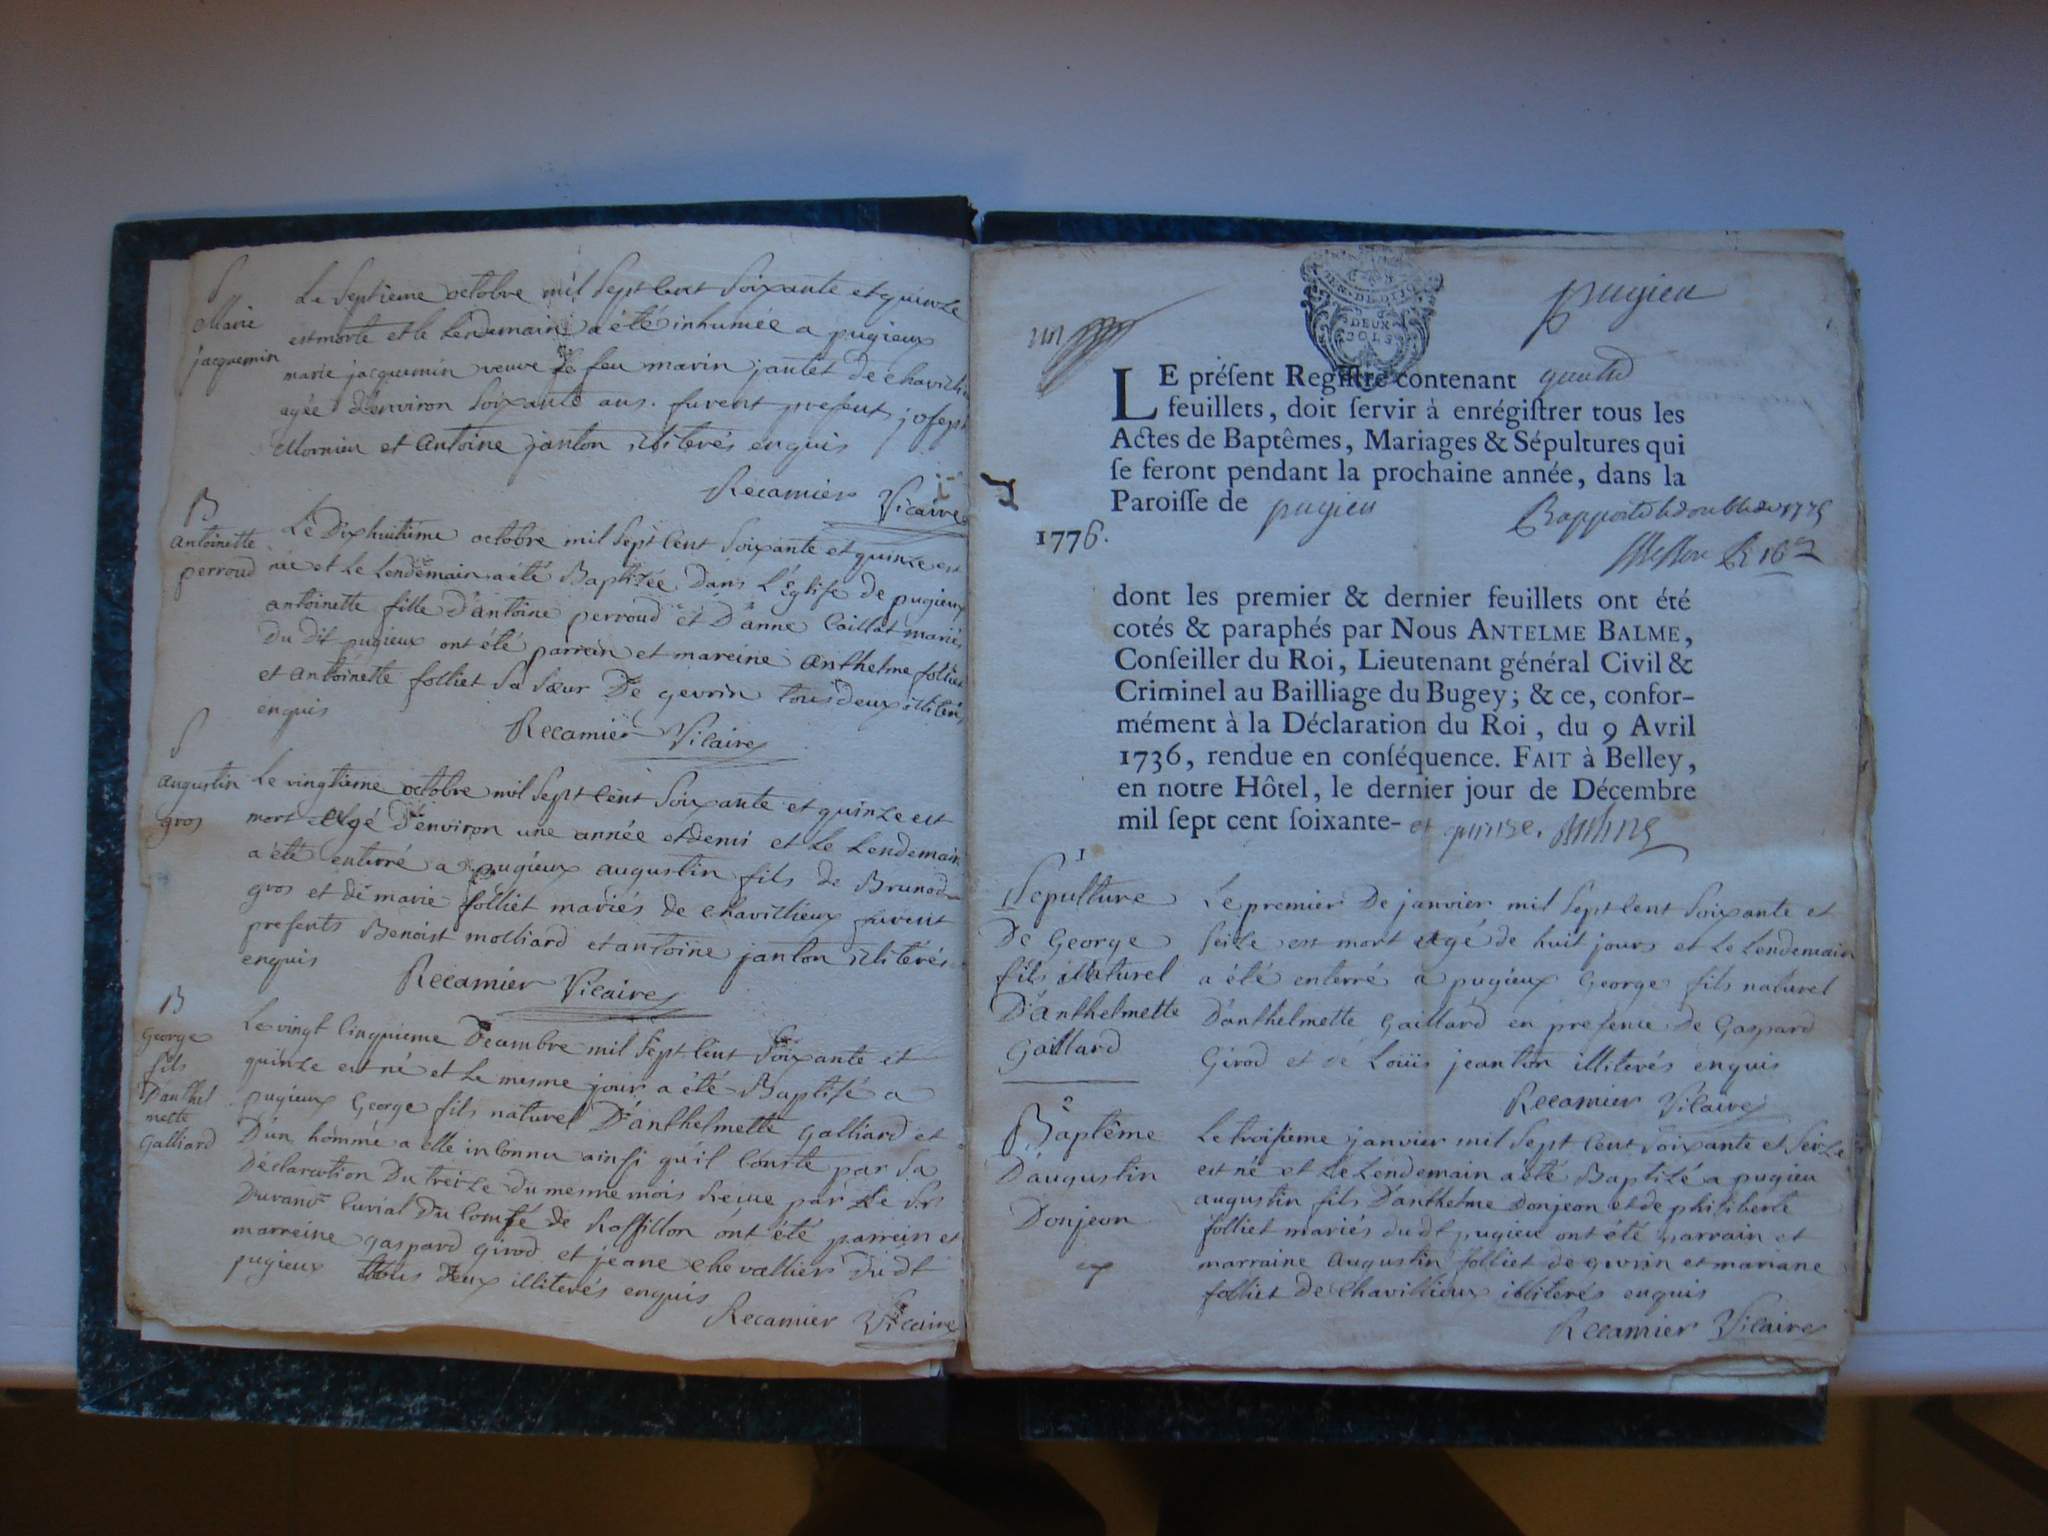 S
Marie
jacquemin
Le Septieme octobre mil Sept Cent Soixante et quinze
est morte et le Lendemain a été inhumée a pugieux
marie jacquemin veuve de feu marin jantet de chavilli
agée d'environ Soixante ans. furent presents joseph
Mornieu et Antoine janton illiterés enquis
Recamier Vicaire
B
antoinette
perroud
Le Dixhuitieme octobre mil Sept Cent Soixante et quinze est
née et Le Lendemain a été Baptisée Dans L'Eglise de pugieux
antoinette fille D'antoine perroud et D'anne Caillat mariés
Du Dit pugieux ont été parrein et mareine anthelme folliet
et antoinette folliet Sa Sœur De gevrin tous deux illiterés
enquis
Recamier Vicaire
S
augustin
gros
Le vingtieme octobre mil Sept Cent Soixante et quinze est
mort agé d'environ une année et demi et Le Lendemain
a été enterré a pugieux augustin fils de Brunod
gros et de marie folliet mariés de chavillieux furent
presents Benoist molliard et antoine janton illiterés
enquis
Recamier Vicaire
B
George
fils
D'anthel
mette
Galliard
Le vingt Cinquieme Decembre mil Sept Cent Soixante et
quinze est né et Le mesme jour a été Baptisé a
pugieux George fils naturel D'anthelmette galliard et
D'un homme a elle inConnu ainsi qu'il Conste par Sa
Déclaration Du treize Du mesme mois Reçue par Le Sr
Durand Curial Du Comté de Rossillon ont été parrein et
marreine gaspard girod et jeane chevallier Dudt
pugieux tous Deux illiterés enquis
Recamier Vicaire
pugieu
DEUX
SOLS
LE préſent Regiſtre contenant quatre
feuillets, doit ſervir à enrégiſtrer tous les
Actes de Baptêmes, Mariages & Sépultures qui
ſe feront pendant la prochaine année, dans la
Paroiſſe de pugieu
Rapporté le double de 1775
1776.
dont les premier & dernier feuillets ont été
cotés & paraphés par Nous ANTELME BALME,
Conſeiller du Roi, Lieutenant général Civil &
Criminel au Bailliage du Bugey; & ce, confor-
mément à la Déclaration du Roi, du 9 Avril
1736, rendue en conſéquence. FAIT à Belley,
en notre Hôtel, le dernier jour de Décembre
mil ſept cent ſoixante- et quinze. Balme
1
Sepulture
De George
fils Naturel
D'anthelmette
Gaillard
Le premier De janvier mil Sept Cent Soixante et
Seize est mort agé de huit jours et Le Lendemain
a été enterré a pugieux George fils naturel
D'anthelmette Gaillard en presence de Gaspard
Girod et de Loüis jeanton illiterés enquis
Recamier Vicaire
2
Baptême
D'augustin
Donjeon
Le troisieme janvier mil Sept Cent Soixante et Seize
est né et Le Lendemain a été Baptisé a pugieu
augustin fils D'anthelme Donjeon et de philiberte
folliet mariés dudt pugieu ont été parrain et
marraine augustin folliet de gevrin et mariane
folliet De Chavillieux illiterés enquis
Recamier Vicaire